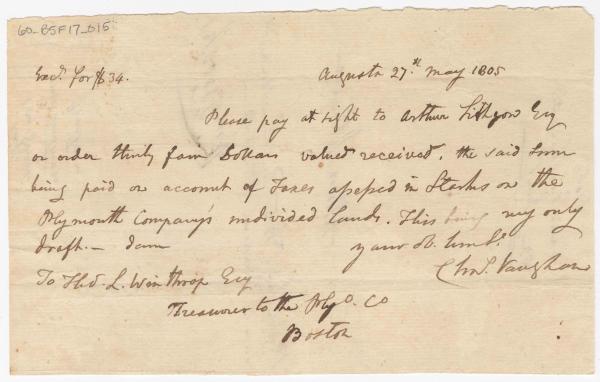 60-BSF17-015
Exc.d for $34.
Augusta 27.th May 1805
Please pay at sight to Arthur Lithgow Esq
or order thirty four Dollars valued received, the said sum
being paid on account of Taxes assessed in Starks on the
Plymouth Company's undivided lands. This being my only
draft. – I am
your ob. Serv.t
Chas. Vaughan
To Thos. L. Winthrop Esq
Treasurer to the Ply.o Co
Boston